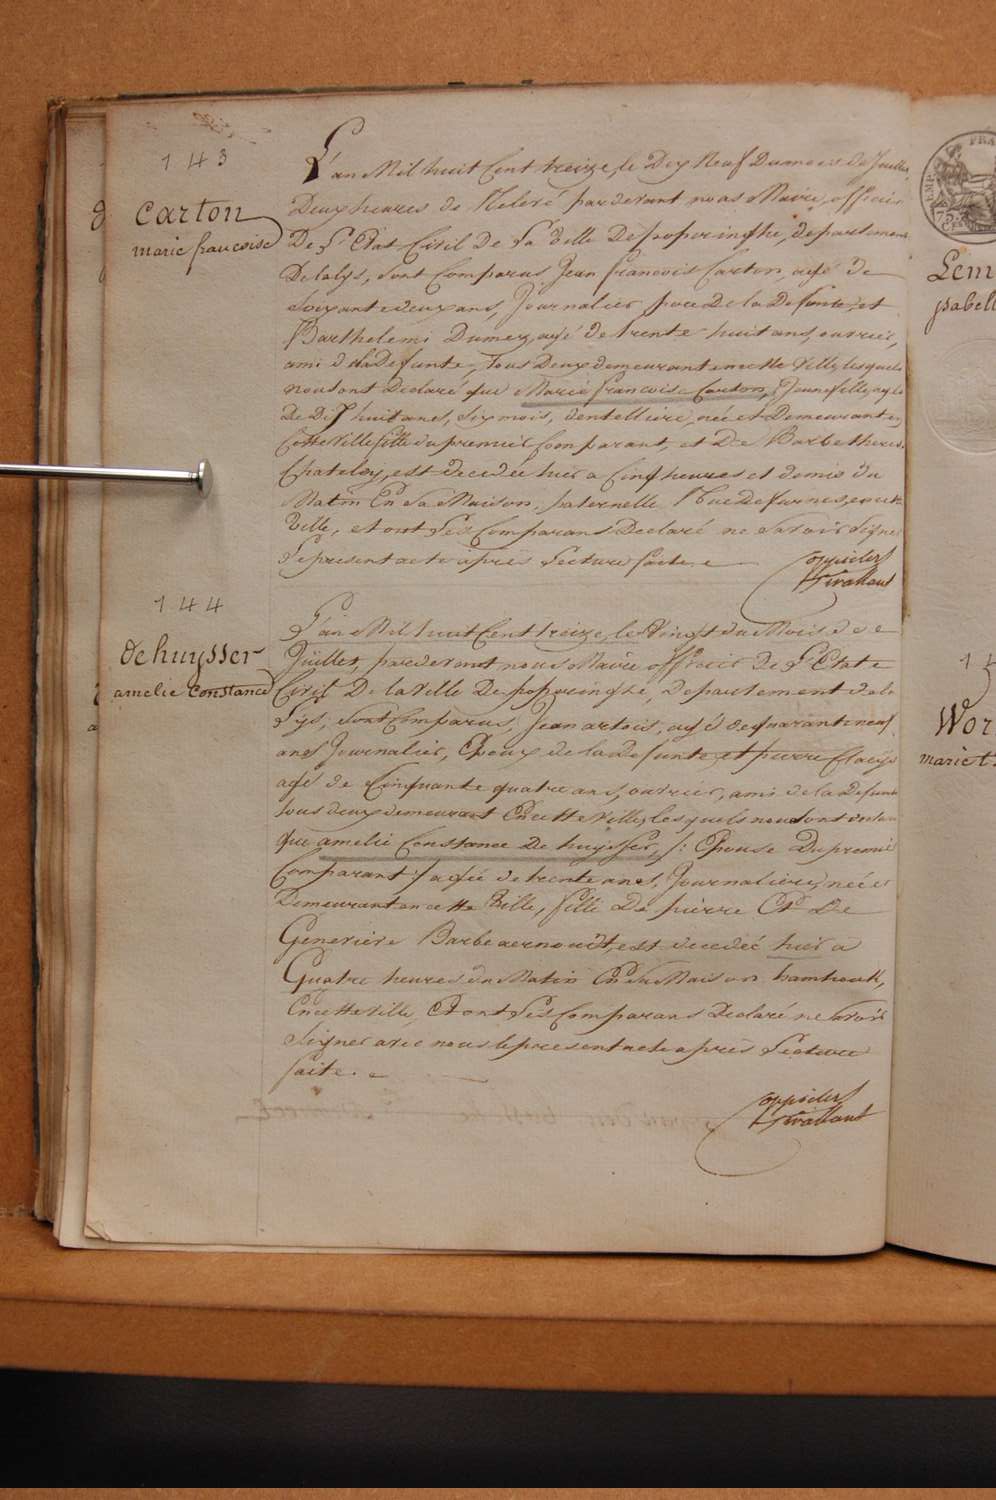 143
Carton
marie francoise
L'an Mil huit Cent treize, le Dix Neuf Dumois de Juillet,
Deux heures de Relevé pardevant nous Maire, officier
De L'Etat Civil De La Ville De poperinghe, departement
Delalys, sont Comparus Jean francois Carton, agé de
Soixante deux ans, Journalier, pere De la Defunte, et
Barthelemi Dumez, agé de trente huit ans, ouvrier,
ami de la Defunte, tous Deux demeurant en cette Ville, lesquels
nous ont Declaré que Marie francoise Carton, Jeune fille, agée
De Dix huit ans, six mois, dentelliere, née et Demeurant en
Cette Ville fille du premier Comparant, et De Barbe therese
Chateley, est decedée hier a Cinq heures et demie du
Matin En Sa Maison paternelle Rue De furnes, en cette
Ville, et ont Les Comparans Declaré ne Savoir Signer
Le present acte après Lecture faite.
144
de huysser
amelie Constance
L'an Mil huit Cent treize, le Vingt du Mois de
Juillet, pardevant nous Maire officier De L'Etat
Civil De la Ville De poperinghe, departement de la
Lys, sont Comparus, Jean artois, agé de quarante neuf
ans Journalier, Epoux de la Defunte, et pierre Claeys
agé de Cinquante quatre ans, ouvrier, ami de la Defunte
tous deux demeurant En cette Ville, lesquels nous ont declaré
que amelie Constance De huysser, /: Epouse Du premier
Comparant :/ agée de trente ans, Journaliere, née et
Demeurant en cette Ville, fille De pierre Et De
Genevière Barbe aernoudt, est decedée hier a
Quatre heures du Matin En Sa Maison hamhoek,
En cette Ville, Et ont Les Comparans Declaré ne Savoir
Signer avec nous le present acte après Lecture
faite.
Lem
Wor